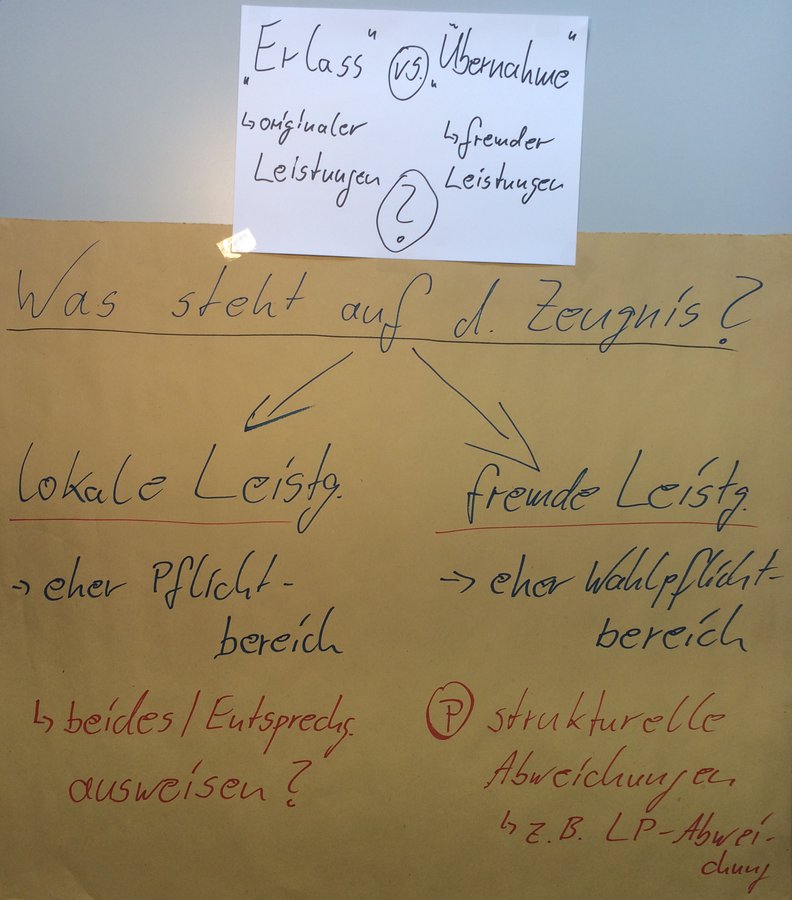 „Erlass" vs. „Übernahme"
↳ originaler Leistungen
↳ fremder Leistungen
?
Was steht auf d. Zeugnis?
lokale Leistg.
→ eher Pflicht-
bereich
↳ beides/Entsprechg.
ausweisen?
fremde Leistg.
→ eher Wahlpflicht-
bereich
P strukturelle
Abweichungen
↳ z.B. LP-Abwei-
chung